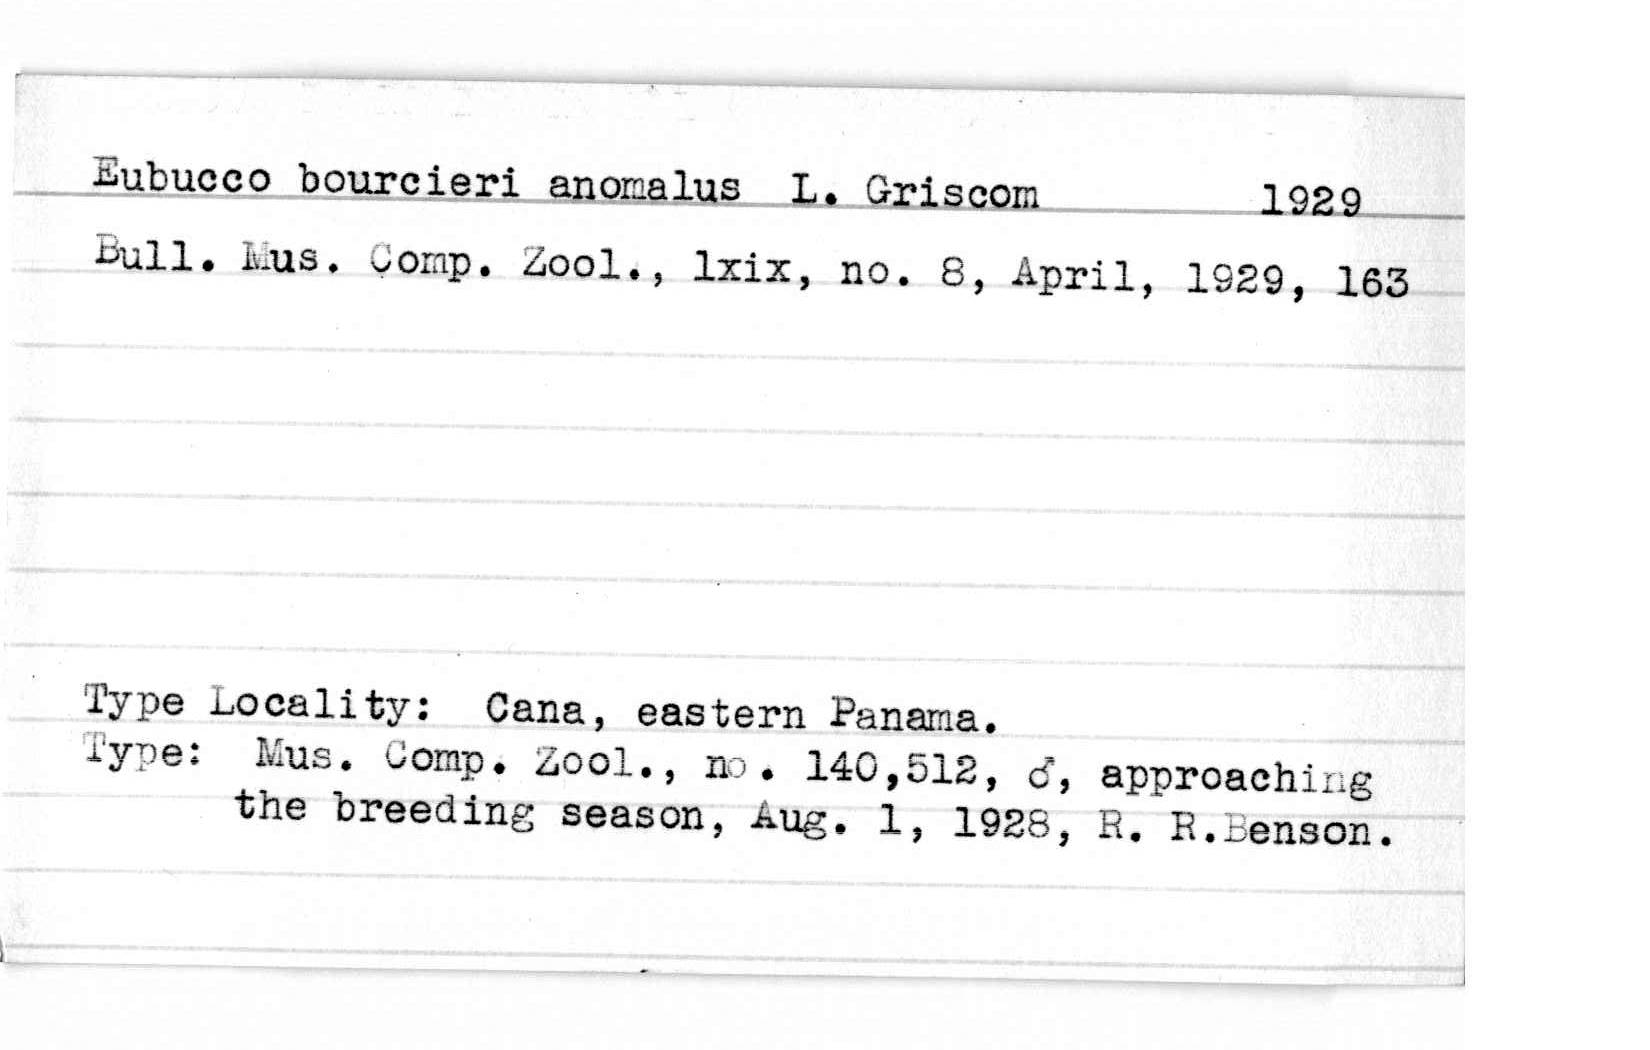 Eubucco bourcieri anomalus L. Griscom 1929
Bull. Mus. Comp. Zool., lxix, no. 8, April, 1929, 163
Type Locality: Cana, eastern Panama.
Type: Mus. Comp. Zool., no. 140,512, ♂, approaching
the breeding season, Aug. 1, 1928, R. R.Benson.